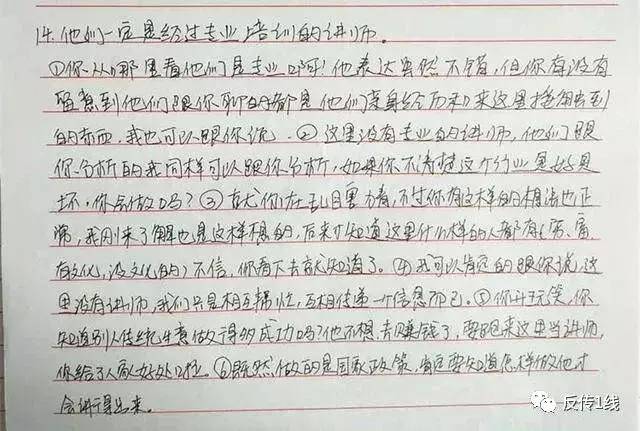 14.他们一定是经过专业培训的讲师。
①你从哪里看他们是专业的呀!他表达虽然不错,但你有没有
留意到他们跟你聊的都是他们亲身经历和来这里接触到
的东西,我也可以跟你说.②这里没有专业的讲师,他们跟
你分析的我同样可以跟你分析,如果你不清楚这个行业是好是
坏,你会做吗?③就你在盲目害力看,不过你有这样的想法也正
常,我刚来了解也是这样想的,后来才知道这里什么样的人都有(穷、富
有文化,没文化的)不信,你看下去就知道了。④我可以肯定的跟你说,这
里没有讲师,我们只是相互帮忙,互相传递一个信息而已。⑤你开玩笑,你
知道别人传统生意做得多成功吗?他不想去赚钱了,要跑来这里当讲师,
你给了人家好处啦。⑥既然做的是国家政策,肯定要知道怎样做他才
会讲得出来。
反传1线